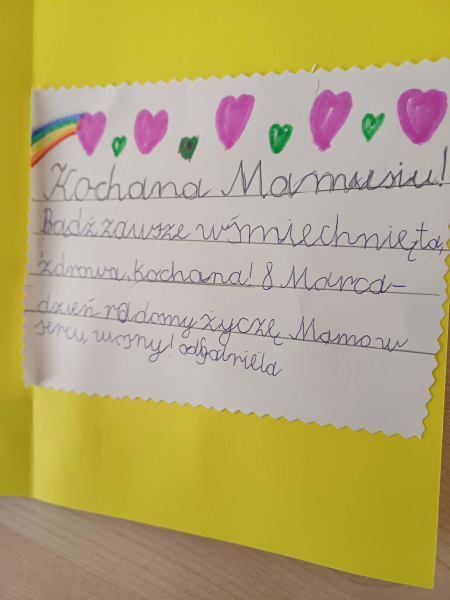 Kochana Mamusiu!
Bądź zawsze wśmiechnięta,
zdrowa, kochana! 8 Marca-
dzień radomy życzę Mamo w
sercu wiosny! od gabriela